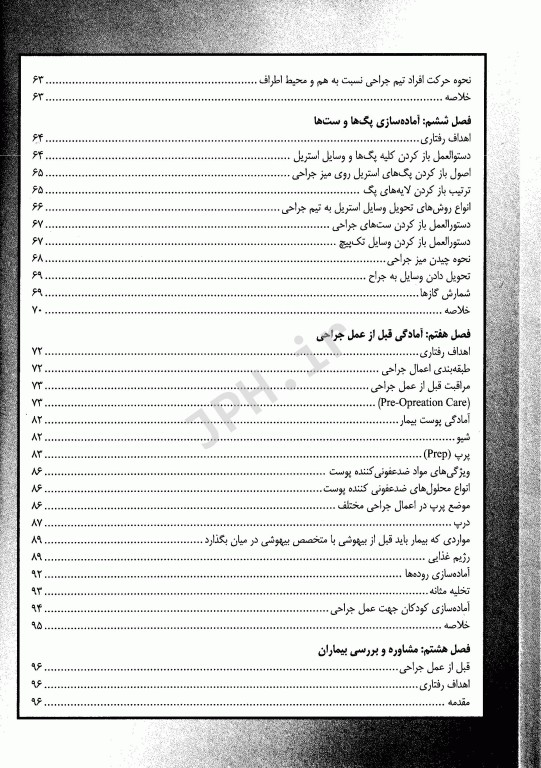 نحوه حرکت افراد تیم جراحی نسبت به هم و محیط اطراف ........ ۶۳
خلاصه ........ ۶۳
فصل ششم: آماده‌سازی پگ‌ها و ست‌ها
اهداف رفتاری ........ ۶۴
دستوالعمل باز کردن کلیه پگ‌ها و وسایل استریل ........ ۶۴
اصول باز کردن پگ‌های استریل روی میز جراحی ........ ۶۵
ترتیب باز کردن لایه‌های پگ ........ ۶۵
انواع روش‌های تحویل وسایل استریل به تیم جراحی ........ ۶۶
دستورالعمل باز کردن ست‌های جراحی ........ ۶۷
دستورالعمل باز کردن وسایل تک‌پیچ ........ ۶۷
نحوه چیدن میز جراحی ........ ۶۸
تحویل دادن وسایل به جراح ........ ۶۹
شمارش گازها ........ ۶۹
خلاصه ........ ۷۰
فصل هفتم: آمادگی قبل از عمل جراحی
اهداف رفتاری ........ ۷۲
طبقه‌بندی اعمال جراحی ........ ۷۲
مراقبت قبل از عمل جراحی ........ ۷۳
(Pre-Opreation Care) ........ ۷۳
آمادگی پوست بیمار ........ ۸۲
شیو ........ ۸۲
پرپ (Prep) ........ ۸۳
ویژگی‌های مواد ضدعفونی‌کننده پوست ........ ۸۶
انواع محلول‌های ضدعفونی کننده پوست ........ ۸۶
موضع پرپ در اعمال جراحی مختلف ........ ۸۶
درپ ........ ۸۷
مواردی که بیمار باید قبل از بیهوشی با متخصص بیهوشی در میان بگذارد ........ ۸۹
رژیم غذایی ........ ۸۹
آماده‌سازی روده‌ها ........ ۹۲
تخلیه مثانه ........ ۹۳
آماده‌سازی کودکان جهت عمل جراحی ........ ۹۴
خلاصه ........ ۹۵
فصل هشتم: مشاوره و بررسی بیماران
قبل از عمل جراحی ........ ۹۶
اهداف رفتاری ........ ۹۶
مقدمه ........ ۹۶
JPH.ir